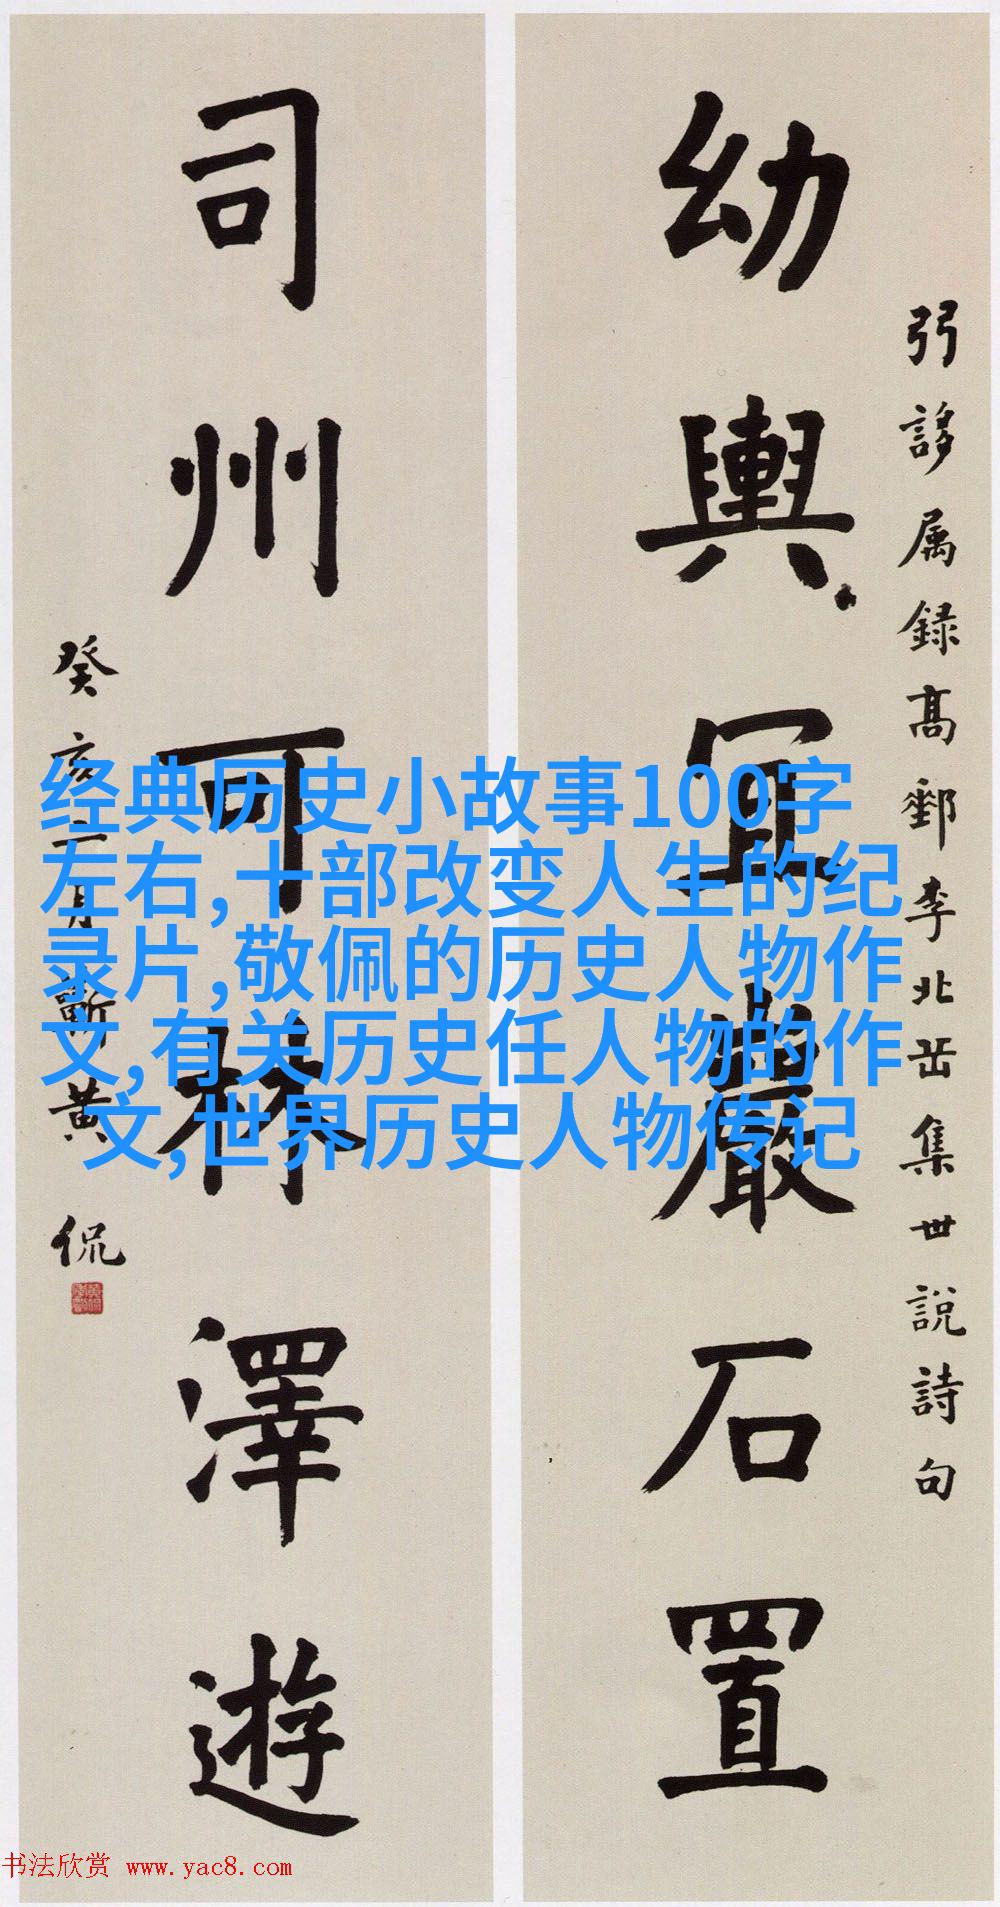 弜誃属録高郵李北岳集世說詩句
幼輿冝巖石置
司州可林澤遊
癸亥二月蘄黃侃
经典历史小故事100字
左右,十部改变人生的纪
录片,敬佩的历史人物作
文,有关历史任人物的作
文,世界历史人物传记
书法欣赏 www.yac8.com